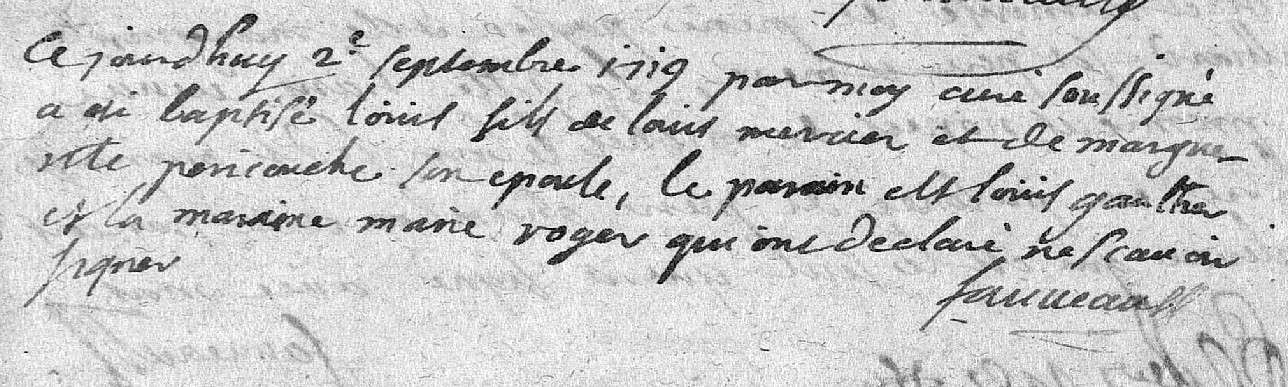 Ce jourdhuy 2e septembre 1719 par moy curé soussigné
a esté baptisé louis fils de louis mercier et de margue-
ritte pericouche son epouse, le parain est louis gaultier
et la maraine marie roger qui ont declaré ne scauoir
signer
fauueau